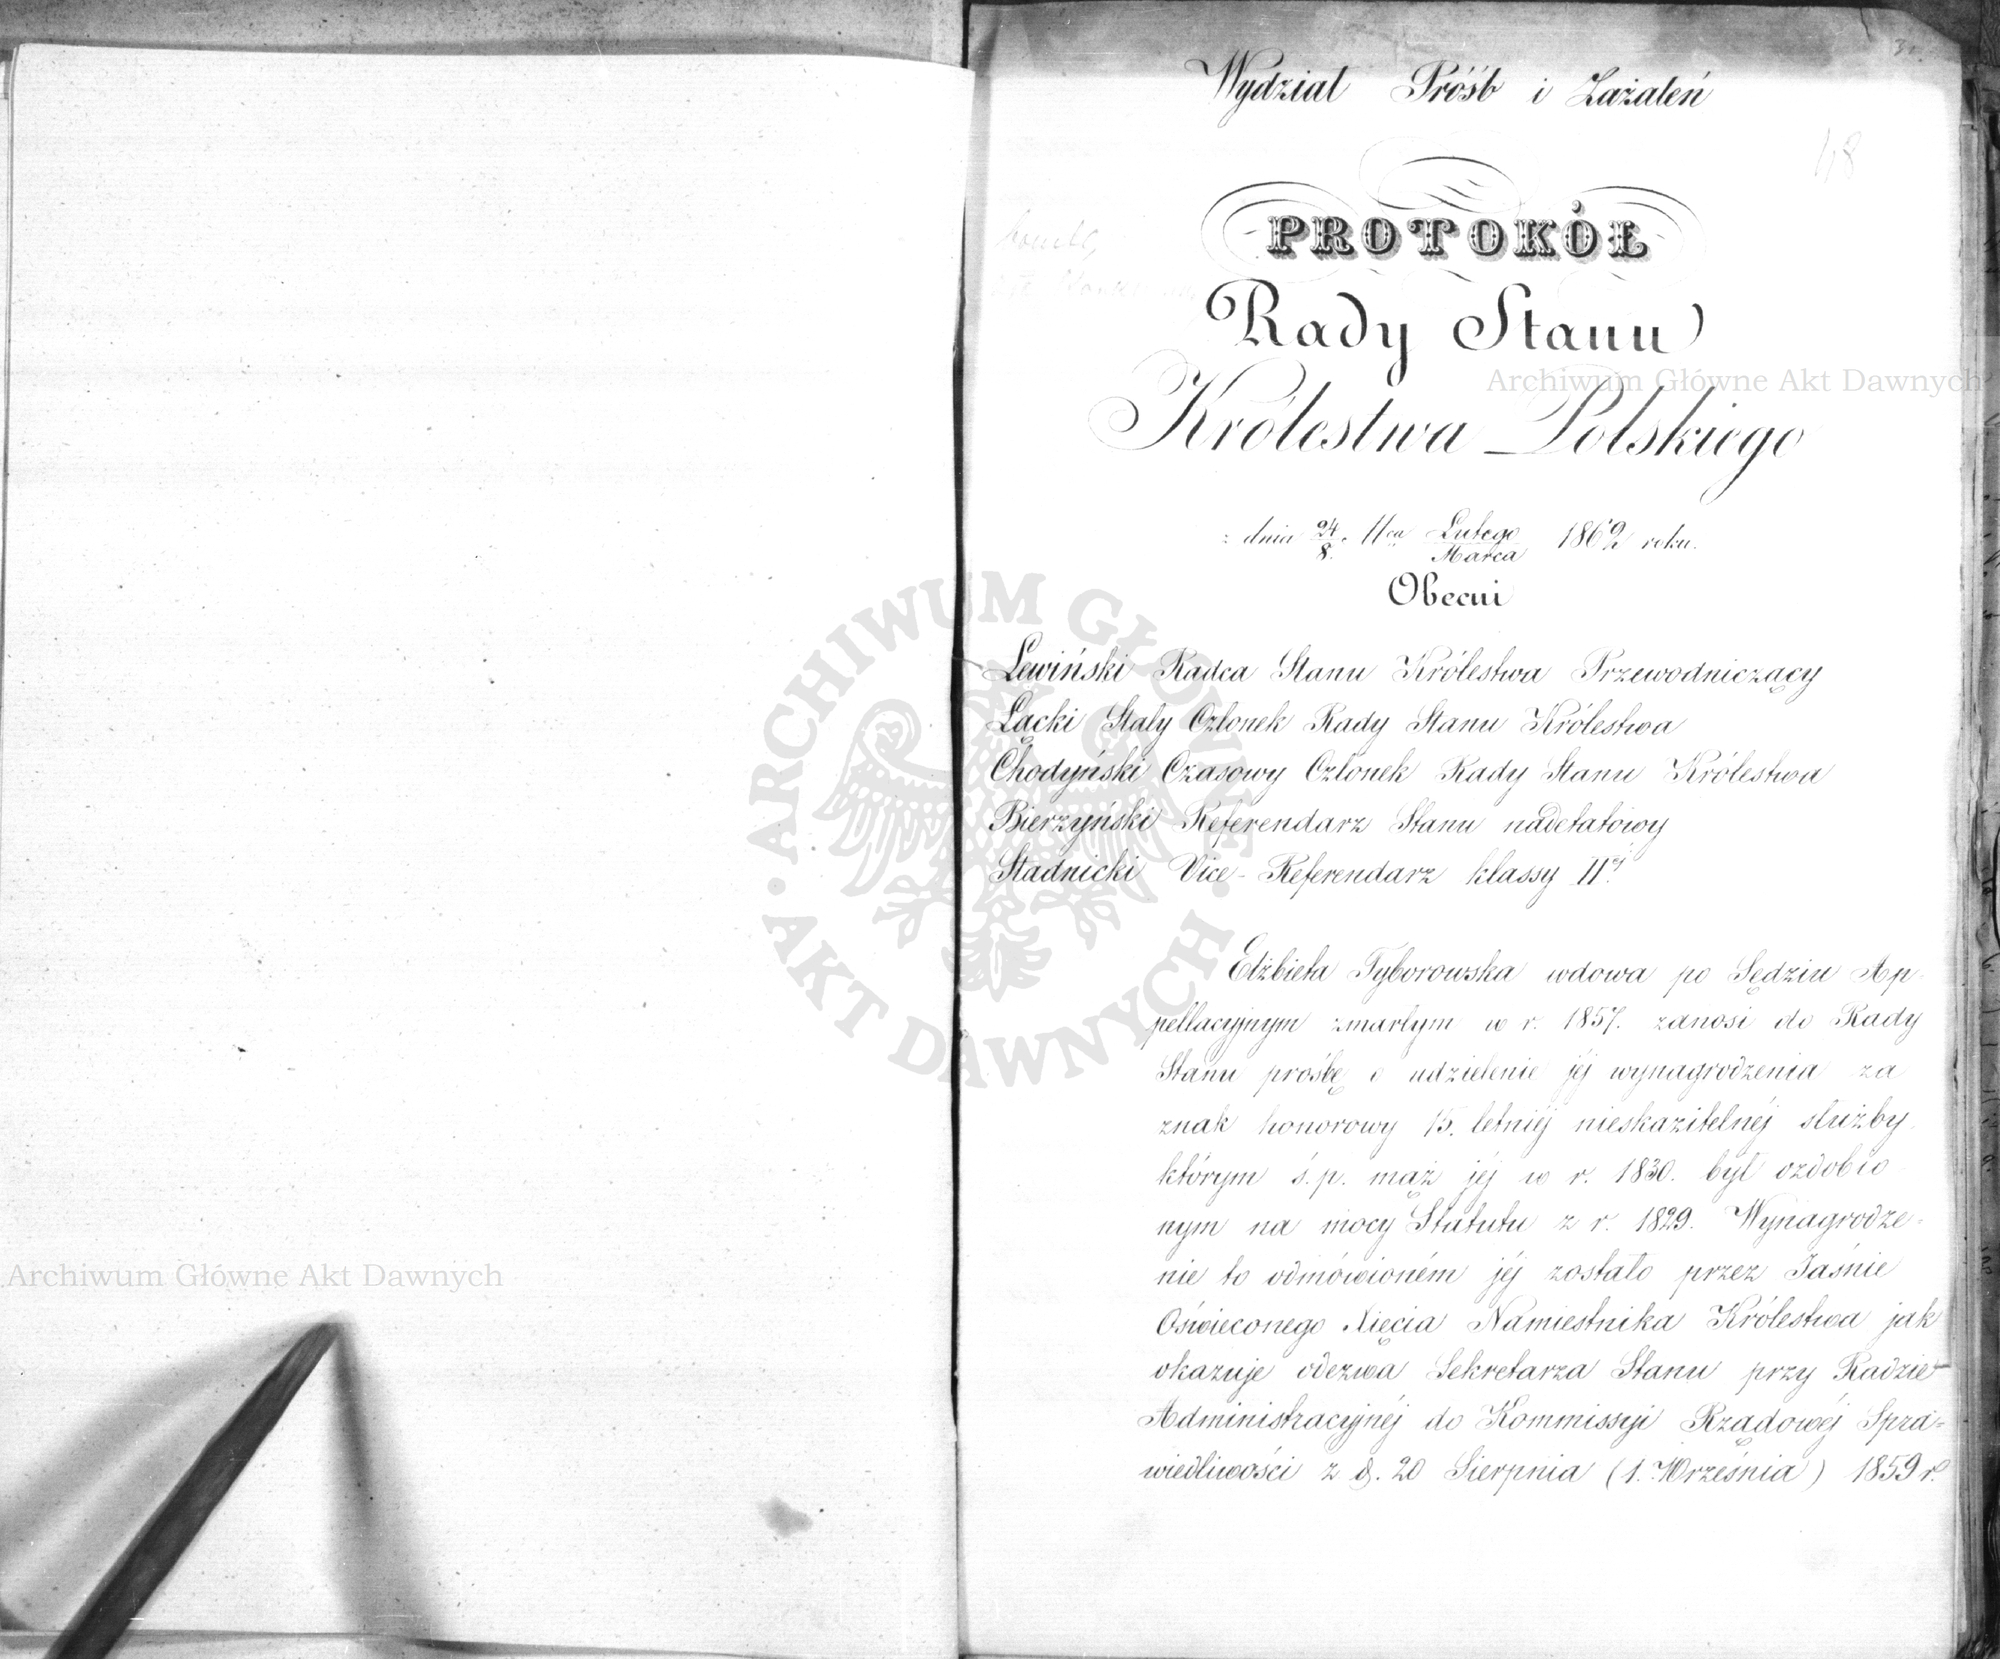 Wydział Próśb i Zażaleń
48
PROTOKÓŁ
Rady Stanu
Królestwa Polskiego
z dnia 24/8. 11ca Lutego/Marca 1862 roku.
Obecni
Lewiński Radca Stanu Królestwa Przewodniczący
Łącki Stały Członek Rady Stanu Królestwa
Chodyński Czasowy Członek Rady Stanu Królestwa
Bierzyński Referendarz Stanu nadetatowy
Stadnicki Vice-Referendarz klassy IIéj
Elżbieta Tyborowska wdowa po Sędziu Ap-
pellacyjnym zmarłym w r. 1857. zanosi do Rady
Stanu prośbę o udzielenie jéj wynagrodzenia za
znak honorowy 15. letniéj nieskazitelnéj służby
którym ś. p. mąż jéj w r. 1830. był ozdobio
nym na mocy Statutu z r. 1829. Wynagrodze-
nie to odmówioném jéj zostało przez Jaśnie
Oświeconego Xięcia Namiestnika Królestwa jak
okazuje odezwa Sekretarza Stanu przy Radzie
Administracyjnéj do Kommissyi Rządowéj Spra-
wiedliwości z d. 20 Sierpnia (1. Września) 1859 r.
Archiwum Główne Akt Dawnych
Archiwum Główne Akt Dawnych
ARCHIWUM GŁÓWNE · AKT DAWNYCH ·